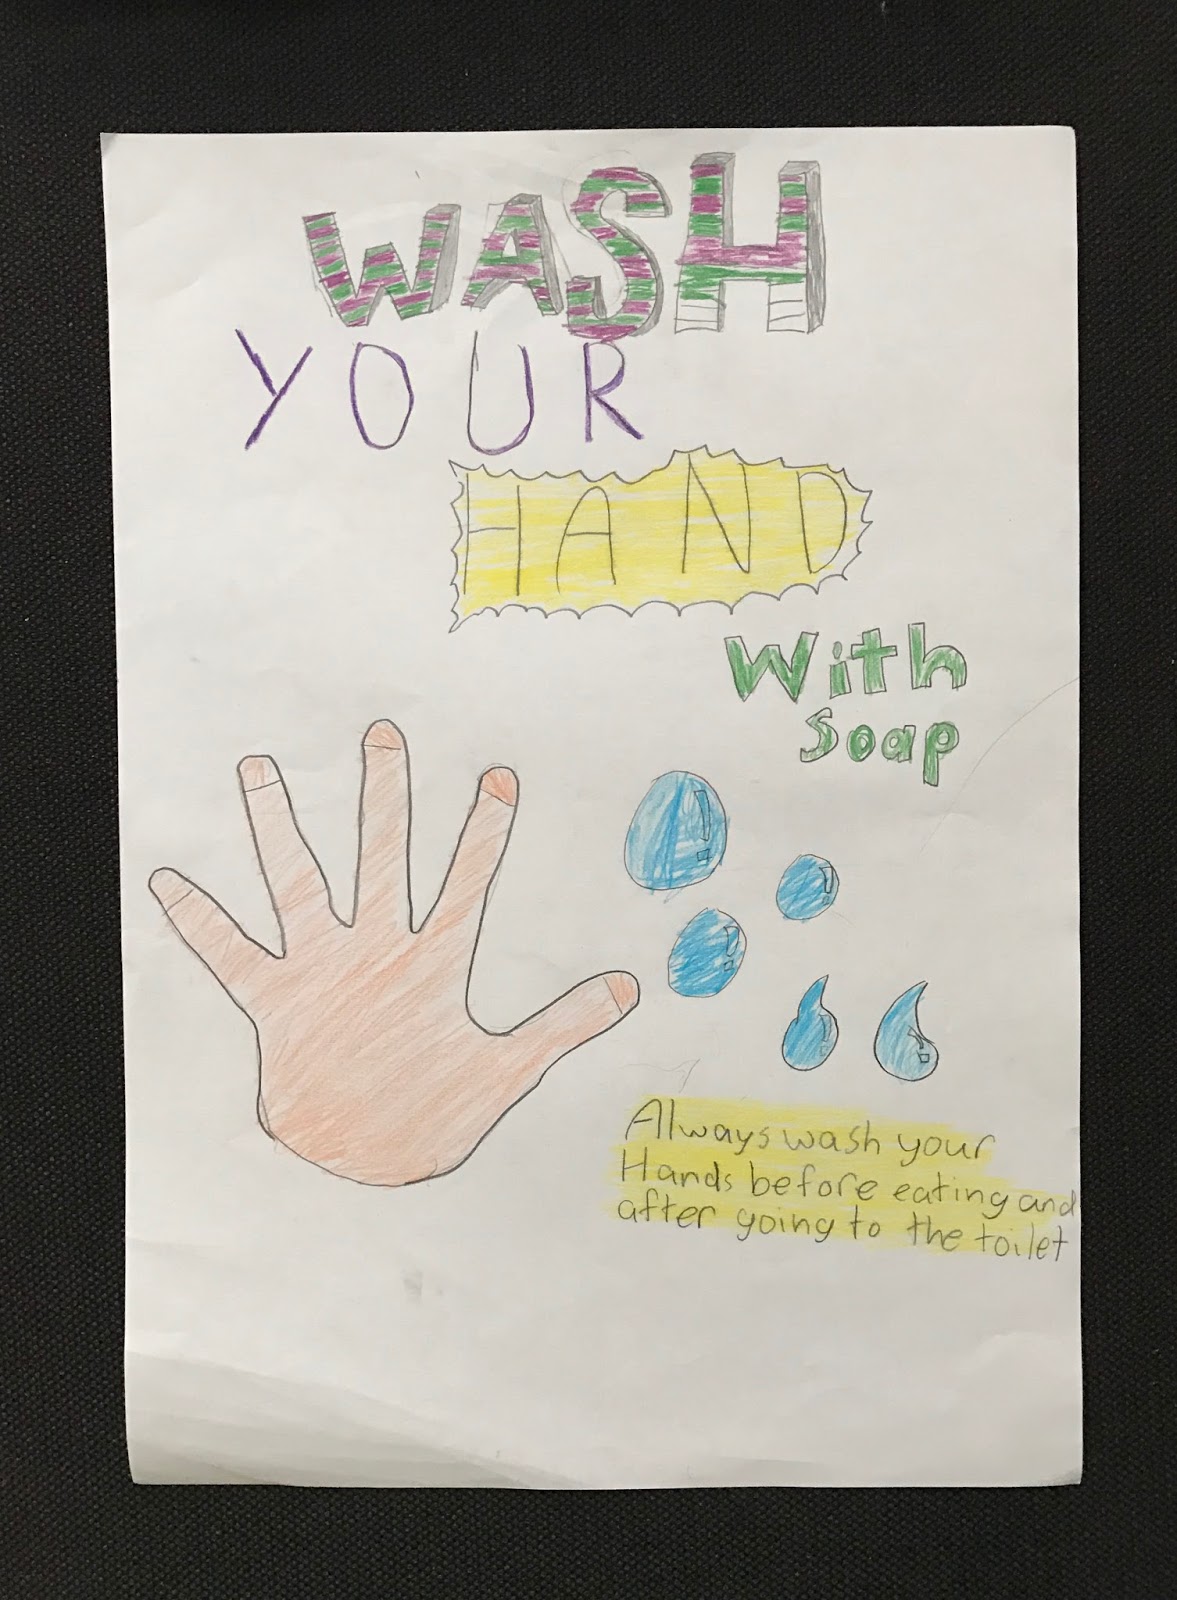 WASH
YOUR
HAND
With
Soap
Always wash your
Hands before eating and
after going to the toilet